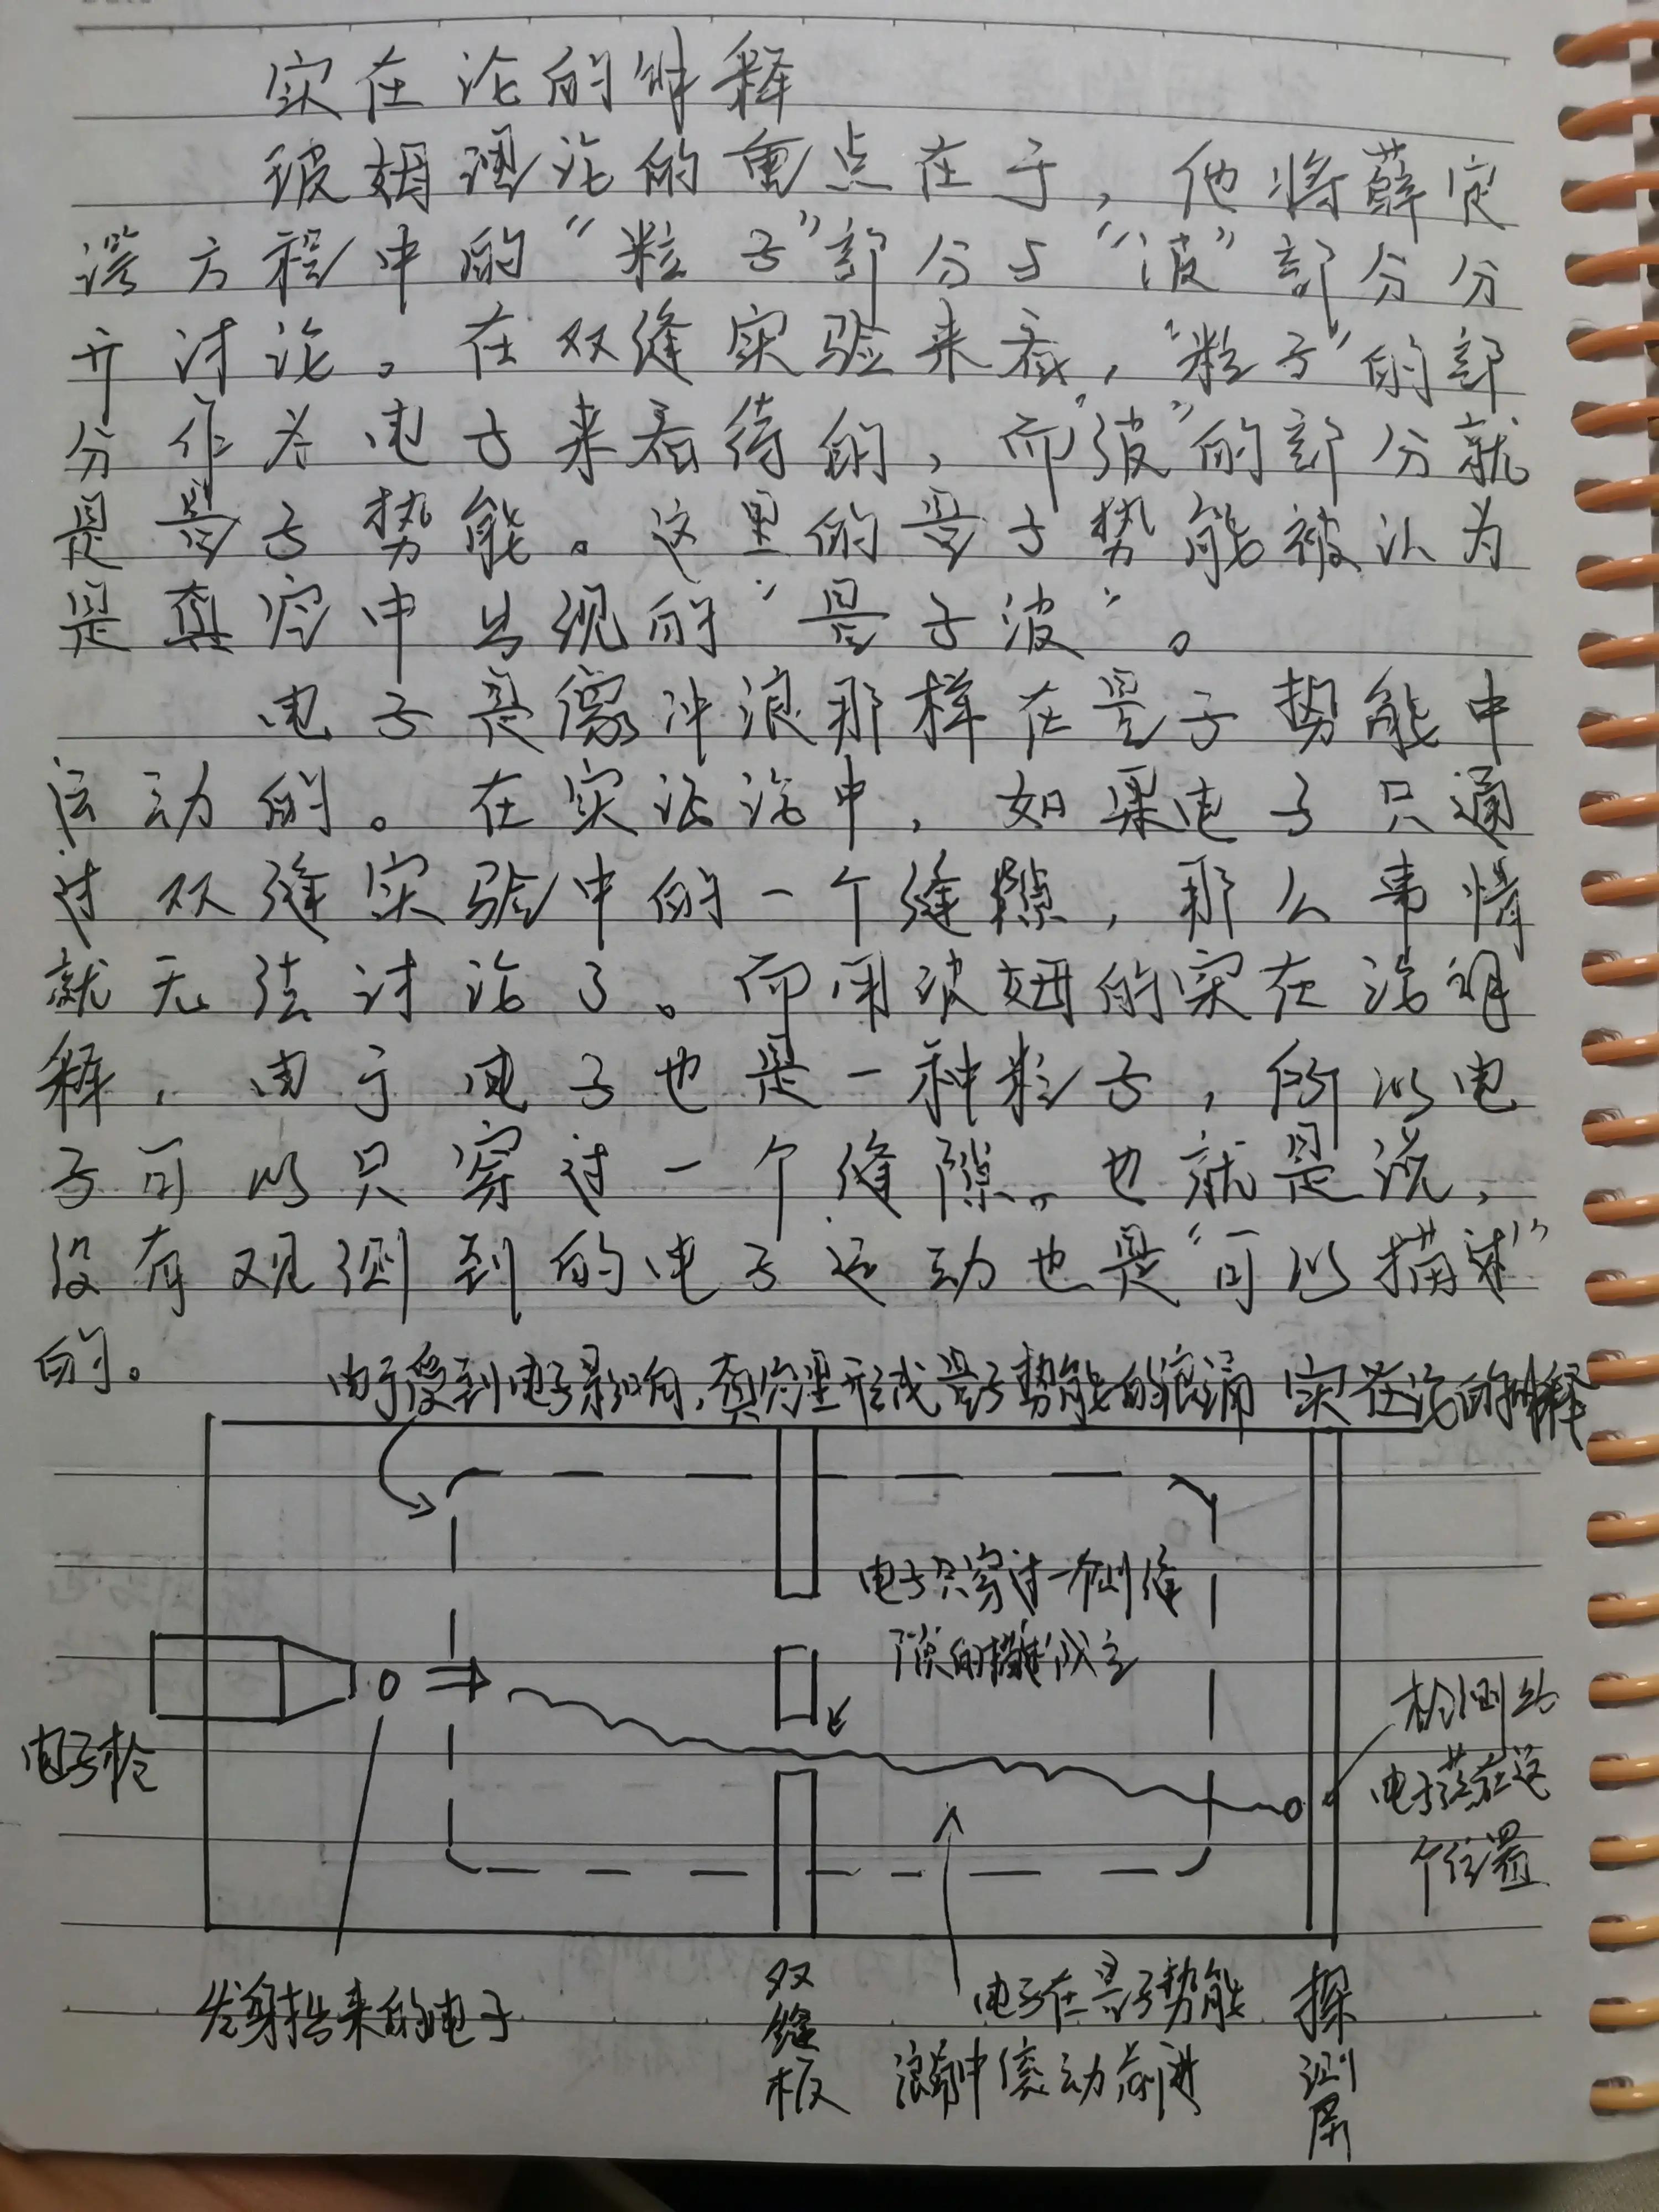 实在论的解释
玻姆理论的重点在于，他将薛定
谔方程中的“粒子”部分与“波”部分分
开讨论。在双缝实验来看，“粒子”的部
分作为电子来看待的，而“波”的部分就
是量子势能。这里的量子势能被认为
是真空中出现的“量子波”。
电子是像冲浪那样在量子势能中
运动的。在实证论中，如果电子只通
过双缝实验中的一个缝隙，那么事情
就无法讨论了。而用玻姆的实在论解
释，由于电子也是一种粒子，所以电
子可以只穿过一个缝隙。也就是说，
没有观测到的电子运动也是“可以描述”
的。
由于受到电子影响，真空里形成量子势能的浪涌 实在论的解释
电子只穿过一侧缝
隙的描述成立
电子枪
检测出
电子落在这
个位置
发射出来的电子
双缝板
电子在量子势能
浪涌中滚动前进
探测屏